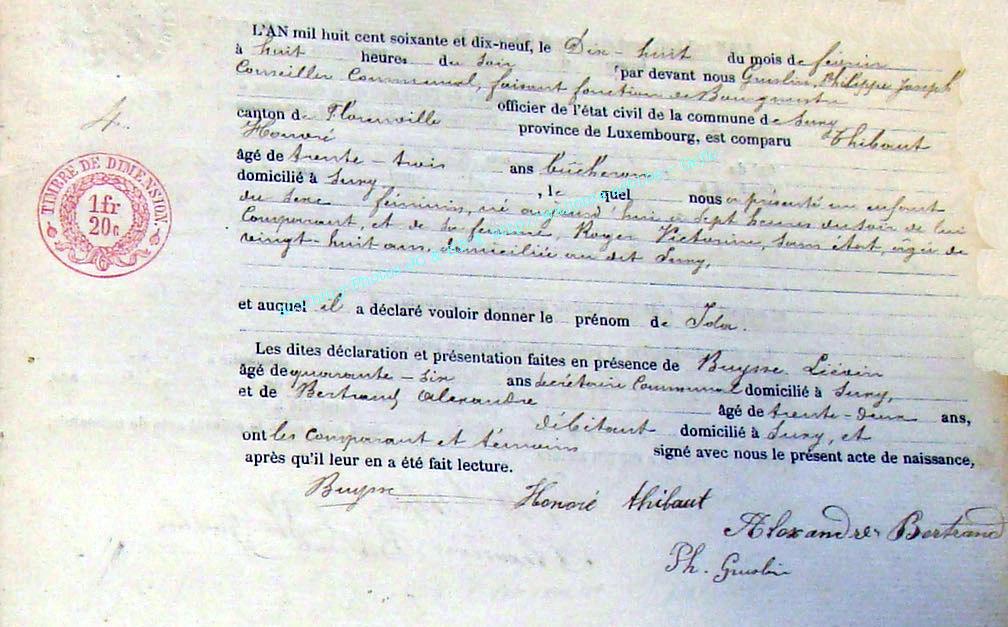 L'AN mil huit cent soixante et dix-neuf, le Dix-huit du mois de février
à huit heures du soir par devant nous Guslin, Philippe Joseph
Conseiller Communal, faisant fonction de Bourgmestre
officier de l'état civil de la commune de Suxy
canton de Florenville province de Luxembourg, est comparu Thibaut
Honoré
âgé de trente-trois ans bûcheron
domicilié à Suxy, lequel nous a présenté un enfant
du sexe féminin, né aujourd'hui à sept heures du soir de lui
Comparant, et de sa femme, Roger Victorine, sans état, âgée de
vingt-huit ans, domiciliée au dit Suxy,
et auquel il a déclaré vouloir donner le prénom de Ida.
Les dites déclaration et présentation faites en présence de Buysse Liévin
âgé de quarante-six ans secrétaire Communal domicilié à Suxy,
et de Bertrand Alexandre âgé de trente-deux ans,
débitant domicilié à Suxy, et
ont les comparant et témoins signé avec nous le présent acte de naissance,
après qu'il leur en a été fait lecture.
Buysse Honoré thibaut
Alexandre Bertrand
Ph. Guslin
4
TIMBRE DE DIMENSION
1 fr
20 c